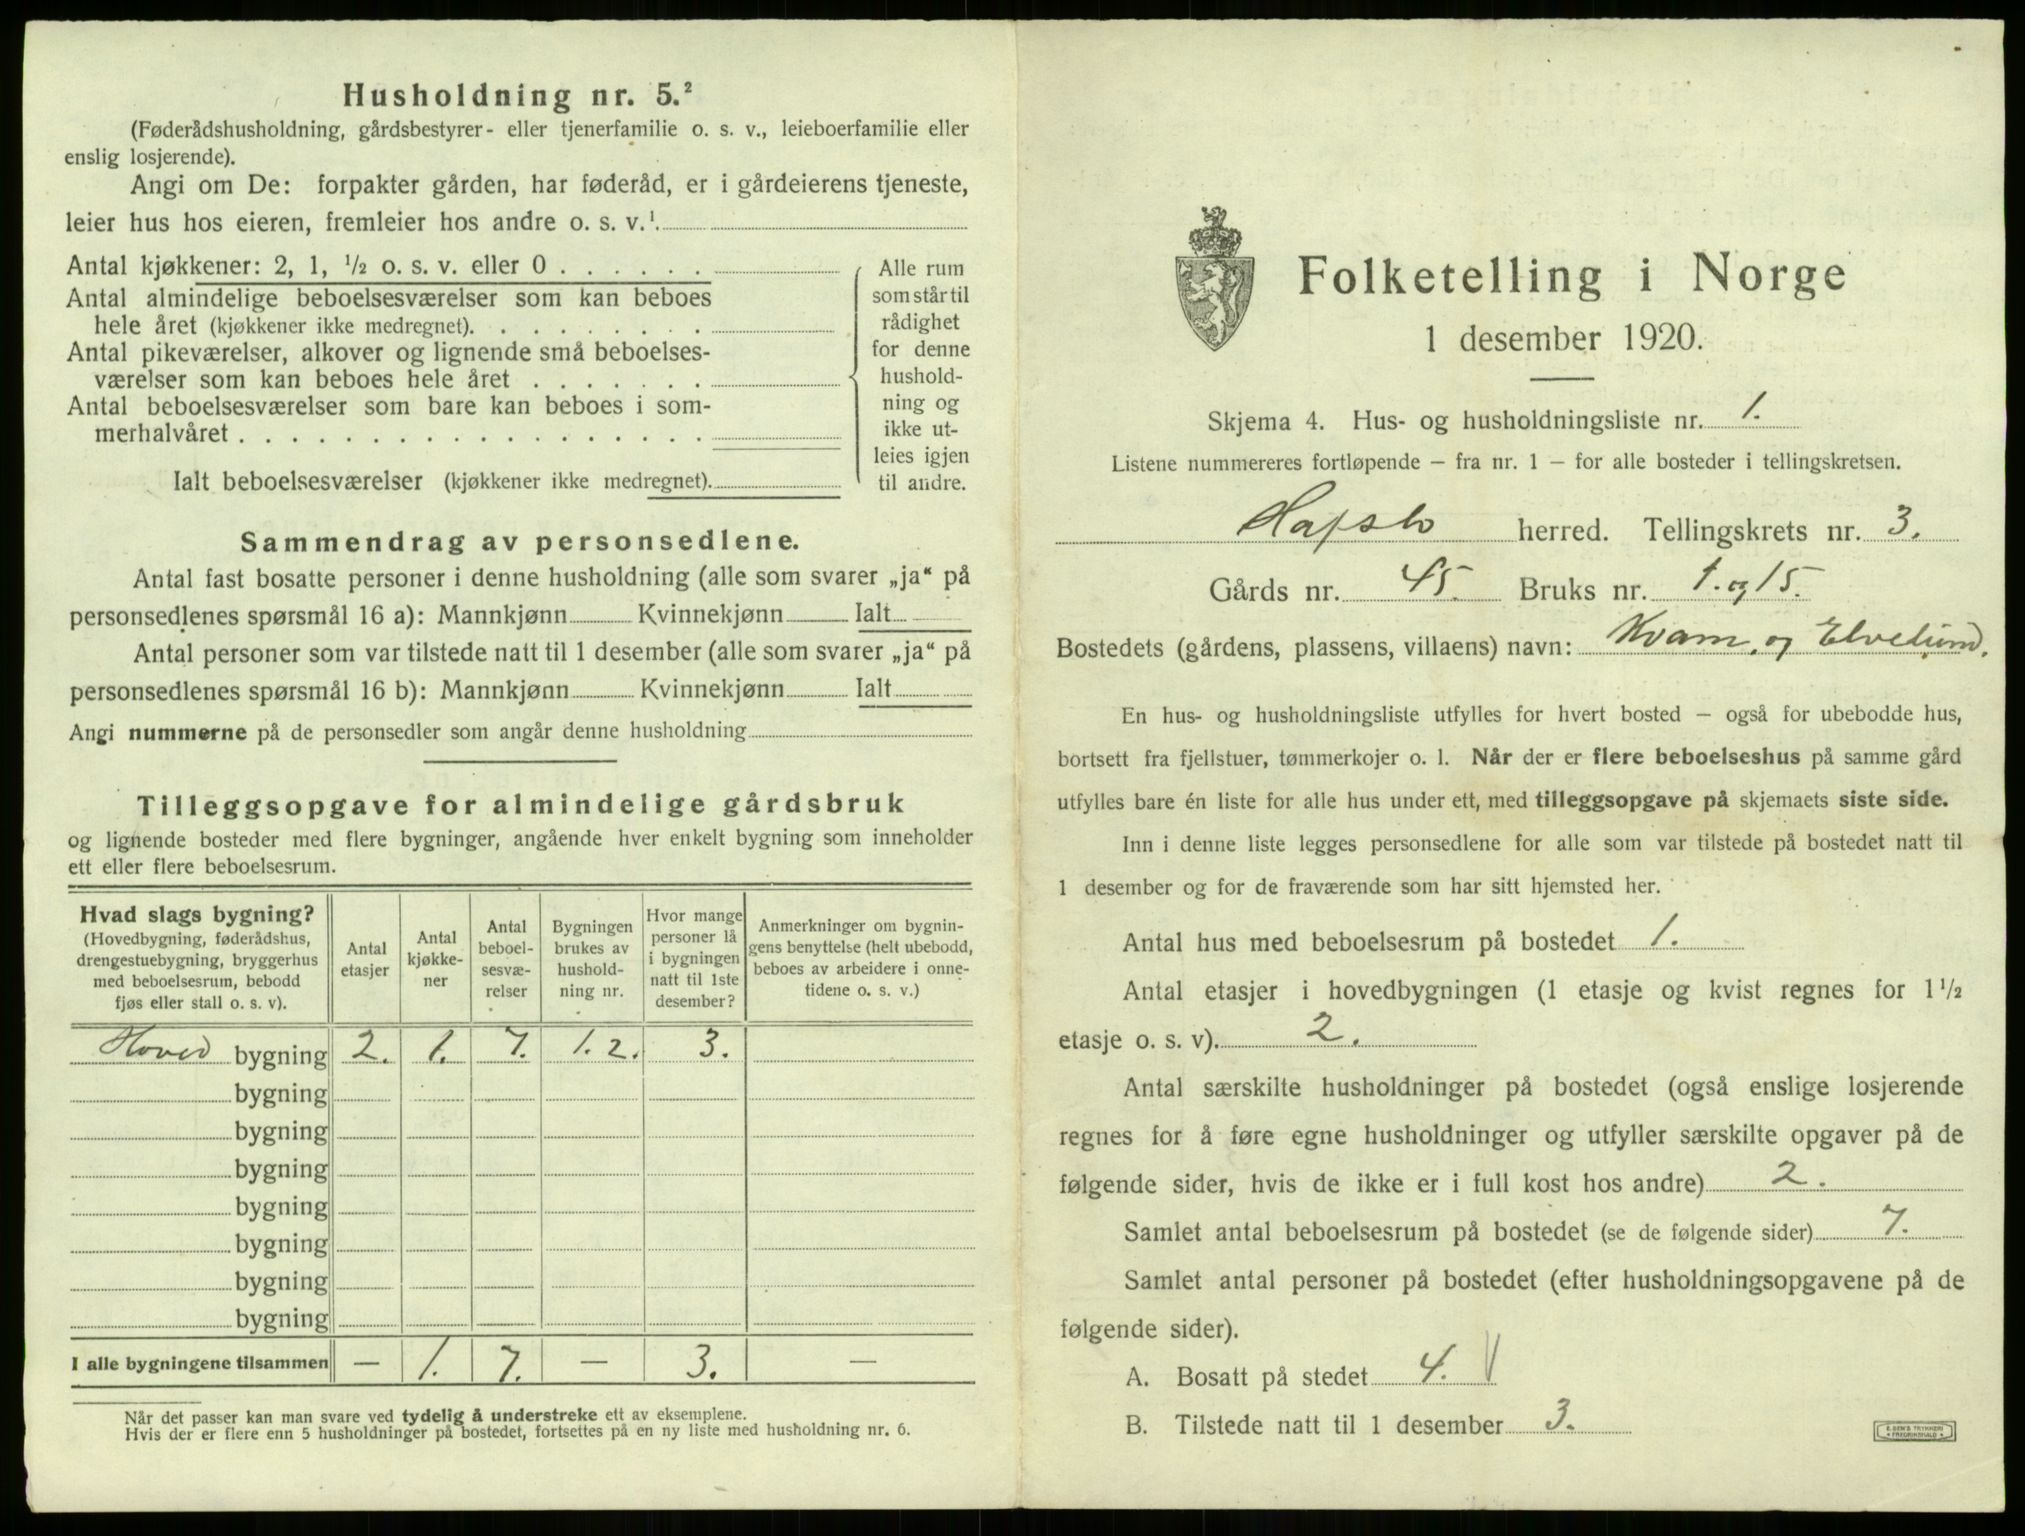 Husholdning nr. 5.²
(Føderådshusholdning, gårdsbestyrer- eller tjenerfamilie o. s. v., leieboerfamilie eller
enslig losjerende).
Angi om De: forpakter gården, har føderåd, er i gårdeierens tjeneste,
leier hus hos eieren, fremleier hos andre o. s. v.¹.
Antal kjøkkener: 2, 1, ½ o. s. v. eller 0 . . . . . .
Antal almindelige beboelsesværelser som kan beboes
hele året (kjøkkener ikke medregnet). . . . . . . . .
Antal pikeværelser, alkover og lignende små beboelses-
værelser som kan beboes hele året . . . . . . .
Antal beboelsesværelser som bare kan beboes i som-
merhalvåret . . . . . . . . . . . . . . . . . .
Ialt beboelsesværelser (kjøkkener ikke medregnet).
Alle rum
som står til
rådighet
for denne
hushold-
ning og
ikke ut-
leies igjen
til andre.
Sammendrag av personsedlene.
Antal fast bosatte personer i denne husholdning (alle som svarer „ja“ på
personsedlenes spørsmål 16 a): Mannkjønn Kvinnekjønn Ialt
Antal personer som var tilstede natt til 1 desember (alle som svarer „ja“ på
personsedlenes spørsmål 16 b): Mannkjønn Kvinnekjønn Ialt
Angi nummerne på de personsedler som angår denne husholdning
Tilleggsopgave for almindelige gårdsbruk
og lignende bosteder med flere bygninger, angående hver enkelt bygning som inneholder
ett eller flere beboelsesrum.
Hvad slags bygning?
(Hovedbygning, føderådshus,
drengestuebygning, bryggerhus
med beboelsesrum, bebodd
fjøs eller stall o. s. v).
Antal
etasjer
Antal
kjøkke-
ner
Antal
beboel-
sesvæ-
relser
Bygningen
brukes av
hushold-
ning nr.
Hvor mange
personer lå
i bygningen
natt til 1ste
desember?
Anmerkninger om bygnin-
gens benyttelse (helt ubebodd,
beboes av arbeidere i onne-
tidene o. s. v.)
Hoved bygning 2. 1. 7. 1. 2. 3.
bygning
bygning
bygning
bygning
bygning
bygning
bygning
I alle bygningene tilsammen — 1. 7. — 3. —
Når det passer kan man svare ved tydelig å understreke ett av eksemplene.
Hvis der er flere enn 5 husholdninger på bostedet, fortsettes på en ny liste med husholdning nr. 6.
Folketelling i Norge
1 desember 1920.
Skjema 4. Hus- og husholdningsliste nr. 1.
Listene nummereres fortløpende — fra nr. 1 — for alle bosteder i tellingskretsen.
Hafslo herred. Tellingskrets nr. 3.
Gårds nr. 45. Bruks nr. 1. og 15.
Bostedets (gårdens, plassens, villaens) navn: Kvam. og Elvelund.
En hus- og husholdningsliste utfylles for hvert bosted — også for ubebodde hus,
bortsett fra fjellstuer, tømmerkojer o. l. Når der er flere beboelseshus på samme gård
utfylles bare én liste for alle hus under ett, med tilleggsopgave på skjemaets siste side.
Inn i denne liste legges personsedlene for alle som var tilstede på bostedet natt til
1 desember og for de fraværende som har sitt hjemsted her.
Antal hus med beboelsesrum på bostedet 1.
Antal etasjer i hovedbygningen (1 etasje og kvist regnes for 1½
etasje o. s. v). 2.
Antal særskilte husholdninger på bostedet (også enslige losjerende
regnes for å føre egne husholdninger og utfyller særskilte opgaver på de
følgende sider, hvis de ikke er i full kost hos andre) 2.
Samlet antal beboelsesrum på bostedet (se de følgende sider) 7.
Samlet antal personer på bostedet (efter husholdningsopgavene på de
følgende sider).
A. Bosatt på stedet 4.
B. Tilstede natt til 1 desember 3.